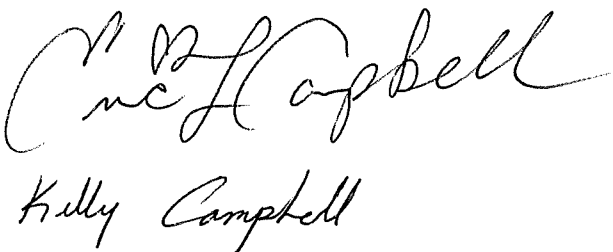 Eric L Campbell
Kelly Campbell